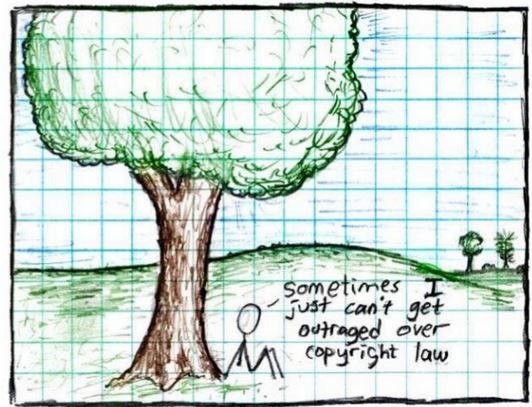 sometimes I
just can't get
outraged over
copyright law